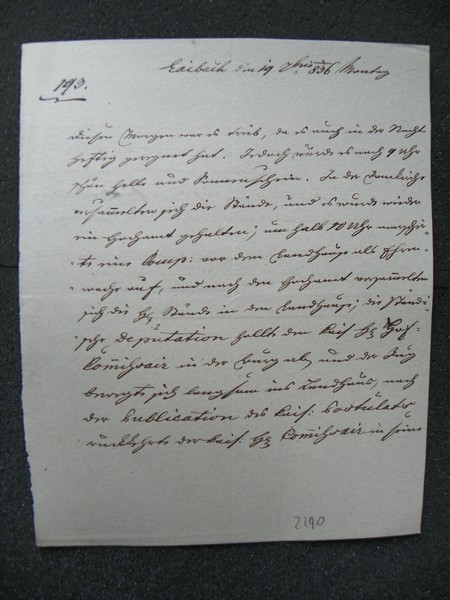 Laibach den 19 7bris 836 Montag
193.
Diesen Morgen war es trüb, da es auch in der Nacht
heftig geregnet hat. Jedoch wurde es nach 9 Uhr
schön helle und Sonnenschein. In der Domkirche
versammelten sich die Stände, und es wurde wieder
ein Hochamt gehalten; um halb 10 Uhr marschir-
te eine Comp: vor dem Landhause als Ehren-
wache auf, und nach dem Hochamt versammelten
sich die H: Stände in dem Landhause; die Ständi-
sche deputation hollte den kais. H: Hof-
Commissair in der Burg ab, und der Zug
bewegte sich langsam ins Landhaus, nach
der Publication des kais: Postulates
rückkehrte der kais: H: Commissair in seine
2190